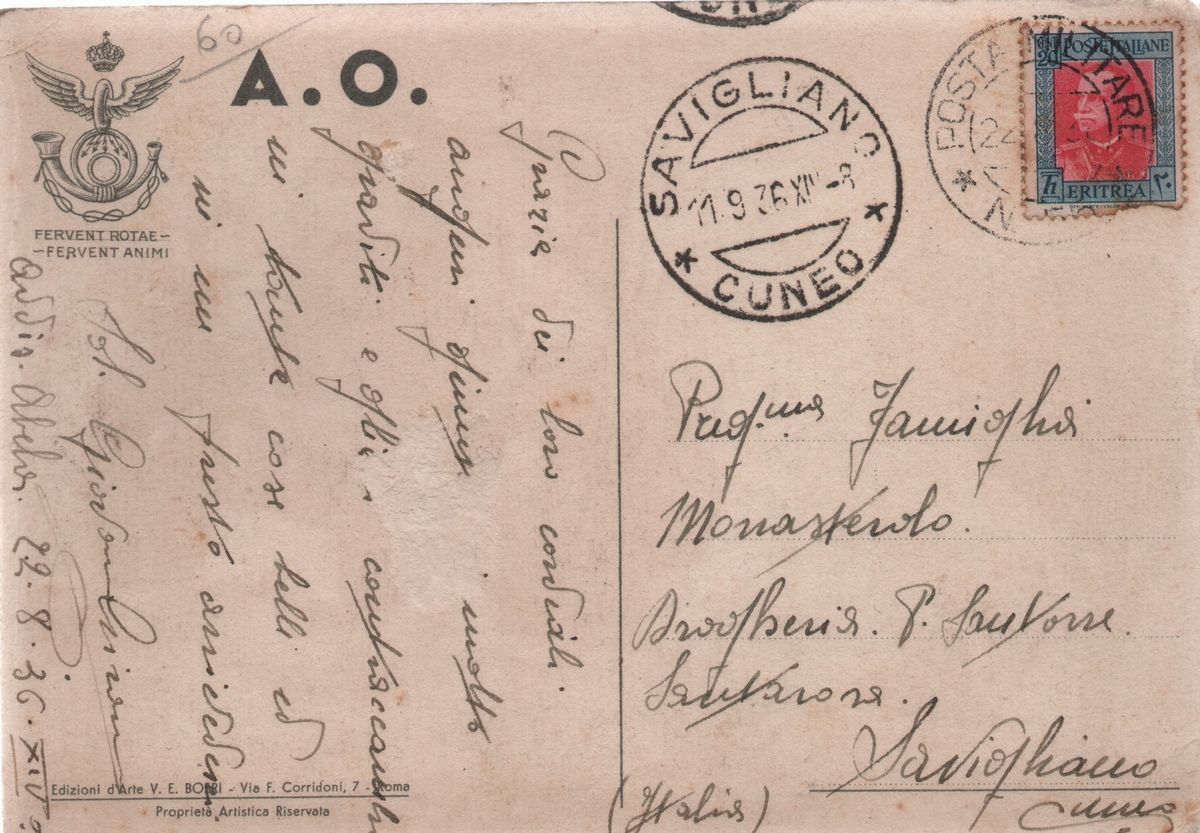 60
A.O.
FERVENT ROTAE-
-FERVENT ANIMI
Grazie dei loro cordiali
auguri giunti molto
graditi e glieli contraccambio
tante cose belle ed
un presto arrivederci
Addis-Abeba 22.8.36.XIV°
Edizioni d'Arte V. E. BOERI - Via F. Corridoni, 7 - Roma
Proprietà Artistica Riservata
SAVIGLIANO
11.9.36 XIV-8
* CUNEO *
* POSTA MILITARE
POSTE ITALIANE
ERITREA
٢٠
Preg.ma Famiglia
Monasterolo.
Drogheria. P. Santorre
Santarosa.
Savigliano
(Italia) Cuneo